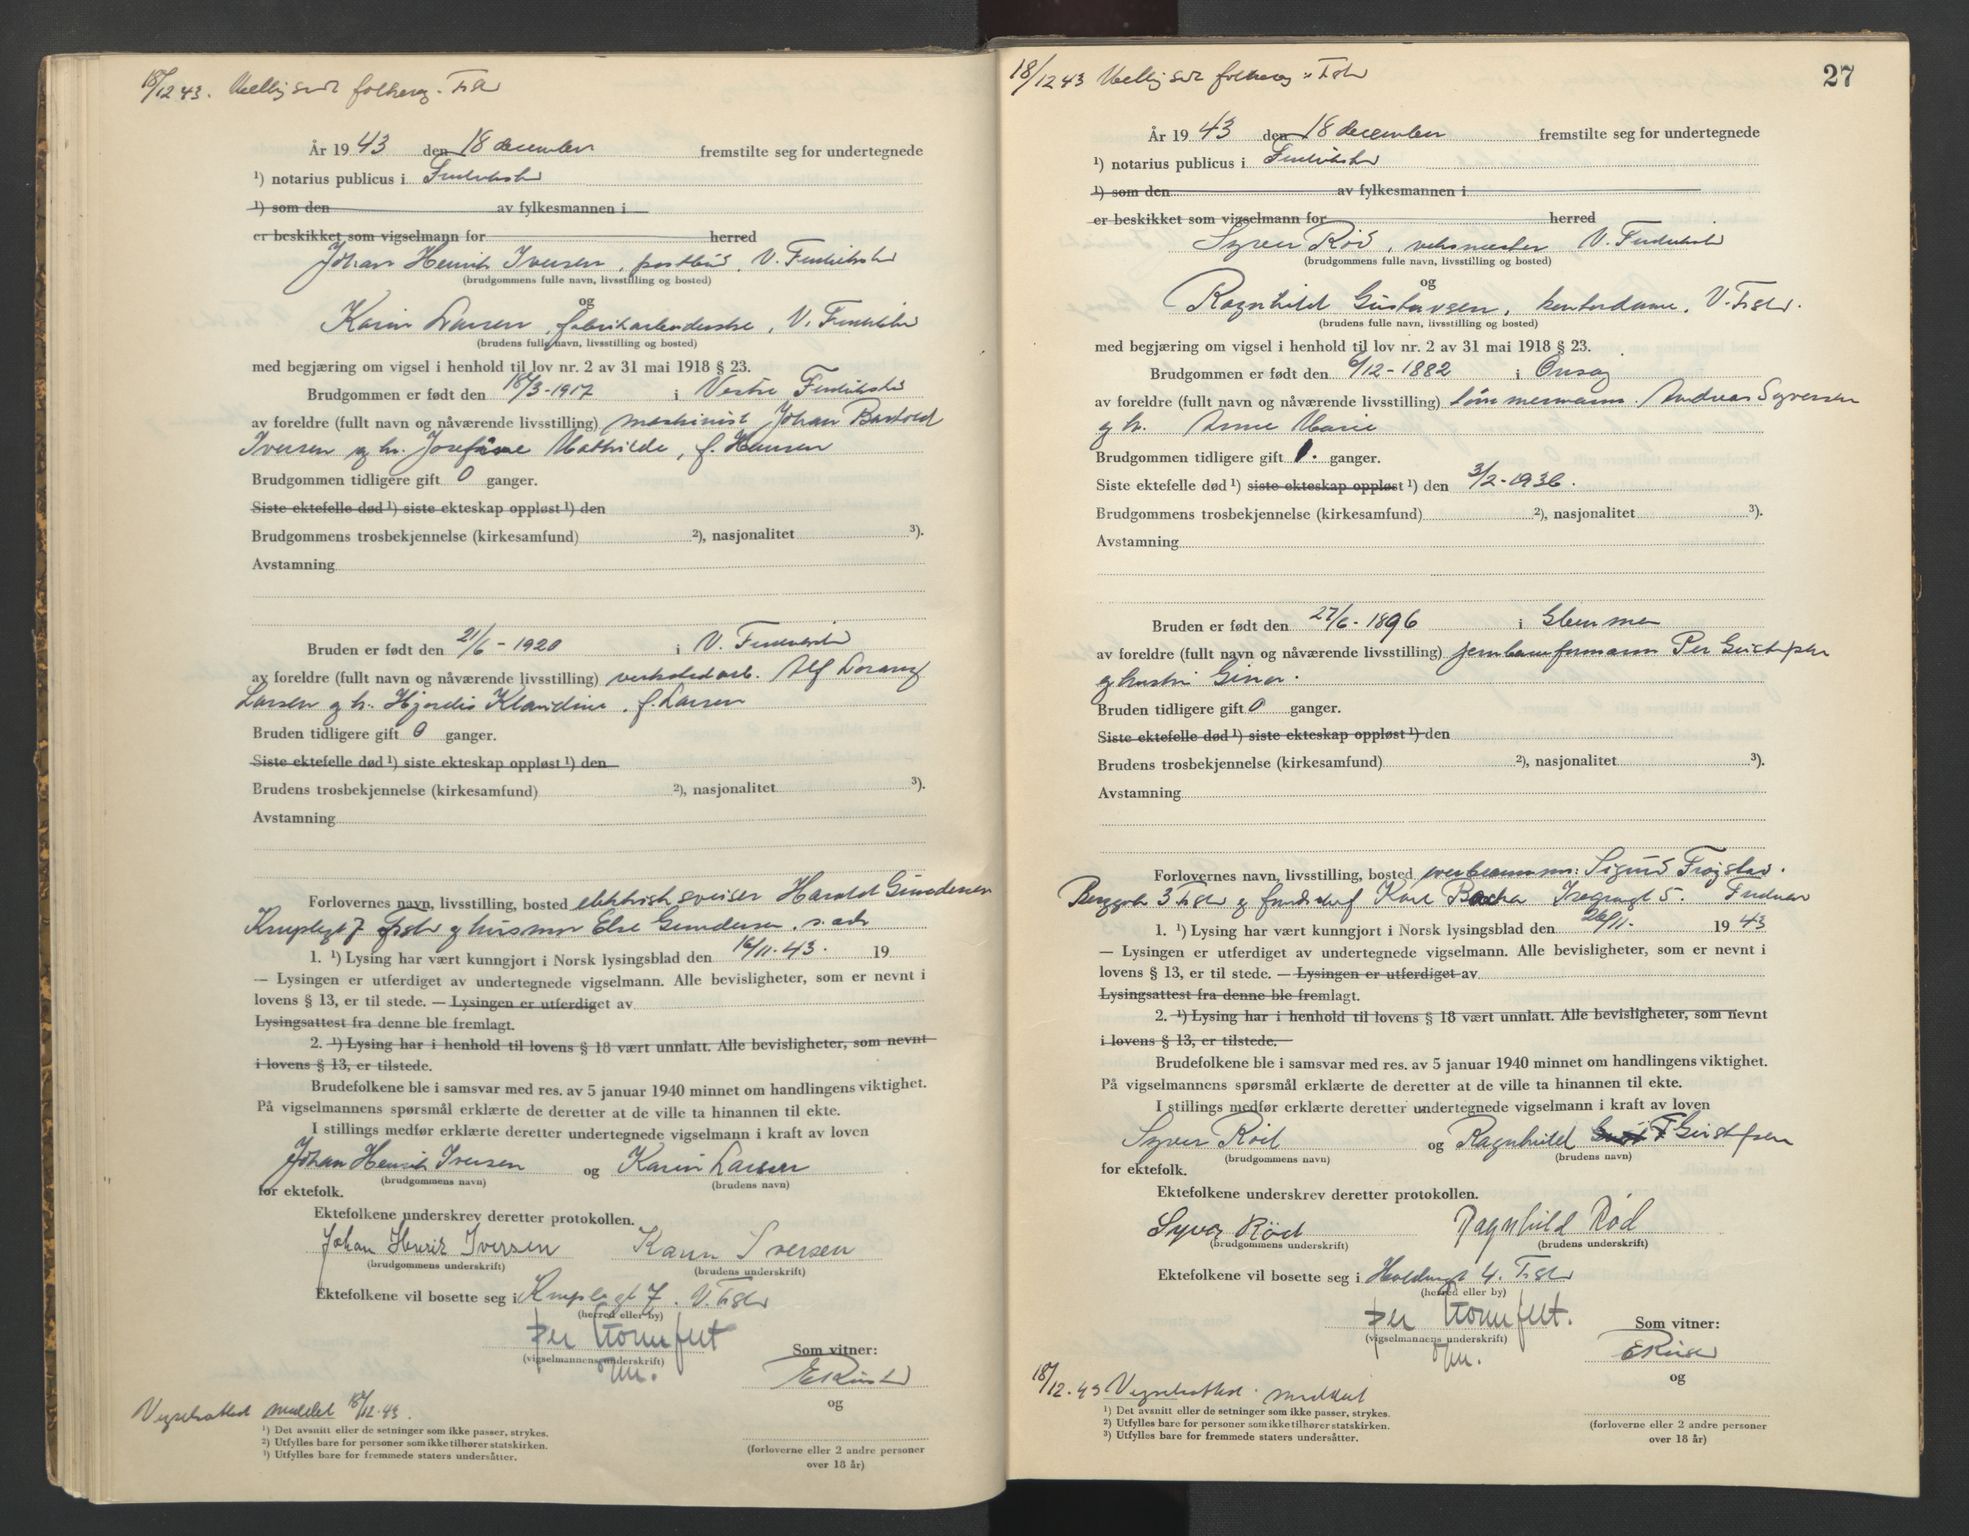 18/12 43. folkereg.
År 1943 den 18 december fremstilte seg for undertegnede
¹) notarius publicus i
¹) som den av fylkesmannen i
er beskikket som vigselmann for herred
Johan Henrik Iversen, postbud, V.
(brudgommens fulle navn, livsstilling og bosted)
og
Karin Larsen, fabrikarbeiderske, V.
(brudens fulle navn, livsstilling og bosted)
med begjæring om vigsel i henhold til lov nr. 2 av 31 mai 1918 § 23.
Brudgommen er født den 18/3-1917 i Vestre
av foreldre (fullt navn og nåværende livsstilling) maskinist Johan Barthold
Iversen og h. Josefine Mathilde, f. Hansen
Brudgommen tidligere gift 0 ganger.
Siste ektefelle død ¹) siste ekteskap oppløst ¹) den
Brudgommens trosbekjennelse (kirkesamfund) ²), nasjonalitet ³).
Avstamning
Bruden er født den 21/6-1920 i V.
av foreldre (fullt navn og nåværende livsstilling) verkstedarb. Alf
Larsen og h. Hjørdis Klaudine, f. Larsen
Bruden tidligere gift 0 ganger.
Siste ektefelle død ¹) siste ekteskap oppløst ¹) den
Brudens trosbekjennelse (kirkesamfund) ²), nasjonalitet ³).
Avstamning
Forlovernes navn, livsstilling, bosted elektrisk sveiser Harald Gundersen
7 og husmor Else Gundersen, s. adr
1. ¹) Lysing har vært kunngjort i Norsk lysingsblad den 16/11. 43. 19
— Lysingen er utferdiget av undertegnede vigselmann. Alle bevisligheter, som er nevnt i
lovens § 13, er til stede. — Lysingen er utferdiget av
Lysingsattest fra denne ble fremlagt.
2. ¹) Lysing har i henhold til lovens § 18 vært unnlatt. Alle bevisligheter, som nevnt
i lovens § 13, er tilstede.
Brudefolkene ble i samsvar med res. av 5 januar 1940 minnet om handlingens viktighet.
På vigselmannens spørsmål erklærte de deretter at de ville ta hinannen til ekte.
I stillings medfør erklærte deretter undertegnede vigselmann i kraft av loven
Johan Henrik Iversen og Karin Larsen
(brudgommens navn) (brudens navn)
for ektefolk.
Ektefolkene underskrev deretter protokollen.
Johan Henrik Iversen Karin Iversen
(brudgommens underskrift) (brudens underskrift)
Ektefolkene vil bosette seg i 7. V.
(herred eller by)
Per
(vigselmannens underskrift)
Som vitner:
og
Vigselsattest meddelt 18/12.43.
¹) Det avsnitt eller de setninger som ikke passer, strykes.
²) Utfylles bare for personer som ikke tilhører statskirken.
³) Utfylles bare for fremmede staters undersåtter.
(forloverne eller 2 andre personer
over 18 år)
27
18/12 43 folkereg.
År 1943 den 18 december fremstilte seg for undertegnede
¹) notarius publicus i
¹) som den av fylkesmannen i
er beskikket som vigselmann for herred
Syver Röd, V.
(brudgommens fulle navn, livsstilling og bosted)
og
Ragnhild Gustavsen, kontordame, V.
(brudens fulle navn, livsstilling og bosted)
med begjæring om vigsel i henhold til lov nr. 2 av 31 mai 1918 § 23.
Brudgommen er født den 6/12-1882 i Onsøy
av foreldre (fullt navn og nåværende livsstilling) tömmermann. Andreas Syversen
og h. Anne Marie
Brudgommen tidligere gift 1. ganger.
Siste ektefelle død ¹) siste ekteskap oppløst ¹) den 3/2-1936.
Brudgommens trosbekjennelse (kirkesamfund) ²), nasjonalitet ³).
Avstamning
Bruden er født den 27/6-1896 i Glemmen
av foreldre (fullt navn og nåværende livsstilling) Per
og hustru Gina.
Bruden tidligere gift 0 ganger.
Siste ektefelle død ¹) siste ekteskap oppløst ¹) den
Brudens trosbekjennelse (kirkesamfund) ²), nasjonalitet ³).
Avstamning
Forlovernes navn, livsstilling, bosted Sigurd
3 og Karl 5.
1. ¹) Lysing har vært kunngjort i Norsk lysingsblad den 26/11. 1943
— Lysingen er utferdiget av undertegnede vigselmann. Alle bevisligheter, som er nevnt i
lovens § 13, er til stede. — Lysingen er utferdiget av
Lysingsattest fra denne ble fremlagt.
2. ¹) Lysing har i henhold til lovens § 18 vært unnlatt. Alle bevisligheter, som nevnt
i lovens § 13, er tilstede.
Brudefolkene ble i samsvar med res. av 5 januar 1940 minnet om handlingens viktighet.
På vigselmannens spørsmål erklærte de deretter at de ville ta hinannen til ekte.
I stillings medfør erklærte deretter undertegnede vigselmann i kraft av loven
Syver Röd og Ragnhild
(brudgommens navn) (brudens navn)
for ektefolk.
Ektefolkene underskrev deretter protokollen.
Syver Röd Ragnhild Röd
(brudgommens underskrift) (brudens underskrift)
Ektefolkene vil bosette seg i 4.
(herred eller by)
Per
(vigselmannens underskrift)
Som vitner:
og
18/12.43 Vigselsattest meddelt
¹) Det avsnitt eller de setninger som ikke passer, strykes.
²) Utfylles bare for personer som ikke tilhører statskirken.
³) Utfylles bare for fremmede staters undersåtter.
(forloverne eller 2 andre personer
over 18 år)